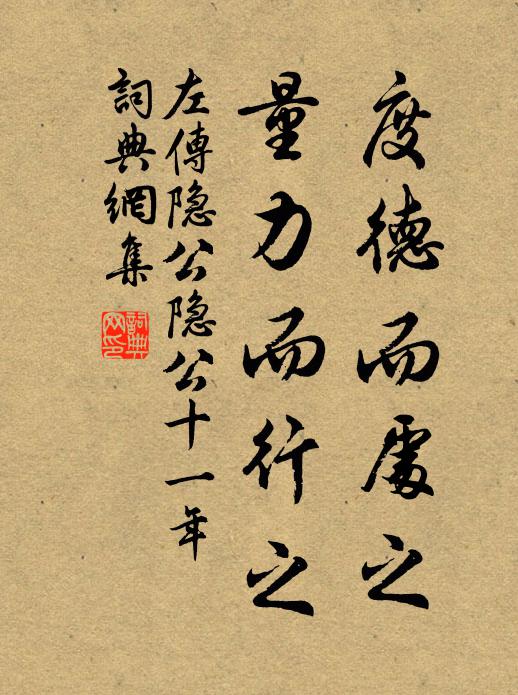 度德而處之
量力而行之
左傳隐公隐公十一年
詞典網集
詞典网印